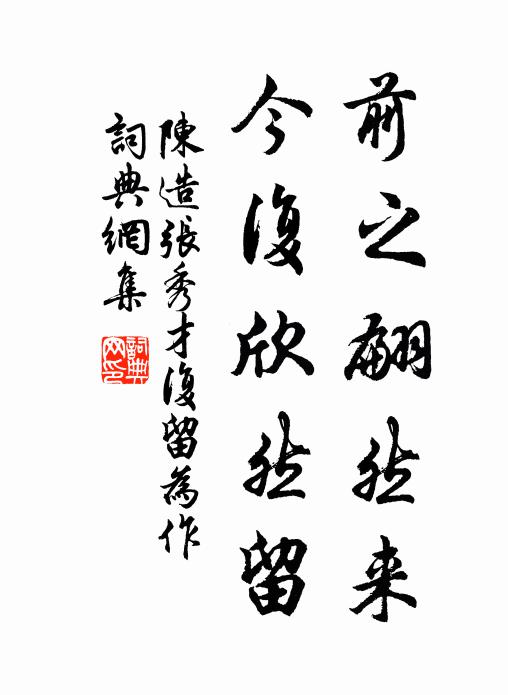 前之翩然来
今復欣然留
陳造張秀才復留為作
詞典網集
詞典网印